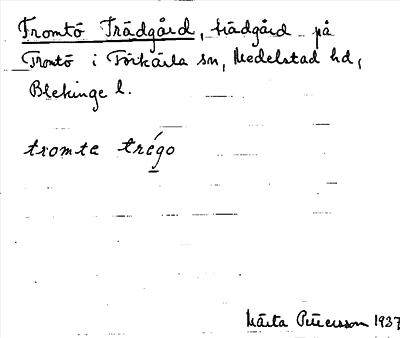 Tromtö Trädgård, trädgård på
Tromtö i Förkärla sn, Medelstad hd,
Blekinge l.
tromte trégo
Märta Petersson 1937